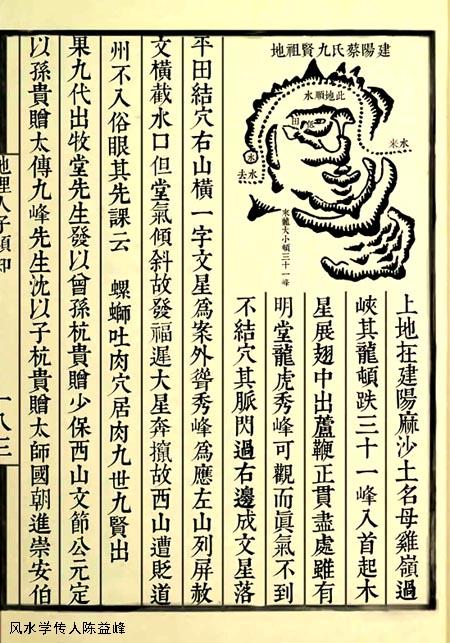 建陽蔡氏九賢祖地
此地順水
田
水來
水
水去
來龍大小頓三十一峰
上地在建陽麻沙土名母雞嶺過
峽其龍頓跌三十一峰入首起木
星展翅中出蘆鞭正貫盡處雖有
明堂龍虎秀峰可觀而眞氣不到
不結穴其脈閃過右邊成文星落
平田結穴右山橫一字文星爲案外聳秀峰爲應左山列屏赦
文橫截水口但堂氣傾斜故發福遲大星奔攛故西山遭貶道
州不入俗眼其先課云 螺螄吐肉穴居肉九世九賢出
果九代出牧堂先生發以曾孫杭貴贈少保西山文節公元定
以孫貴贈太傳九峰先生沈以子杭貴贈太師國朝進崇安伯
地理人子須知
一八三
风水学传人陈益峰